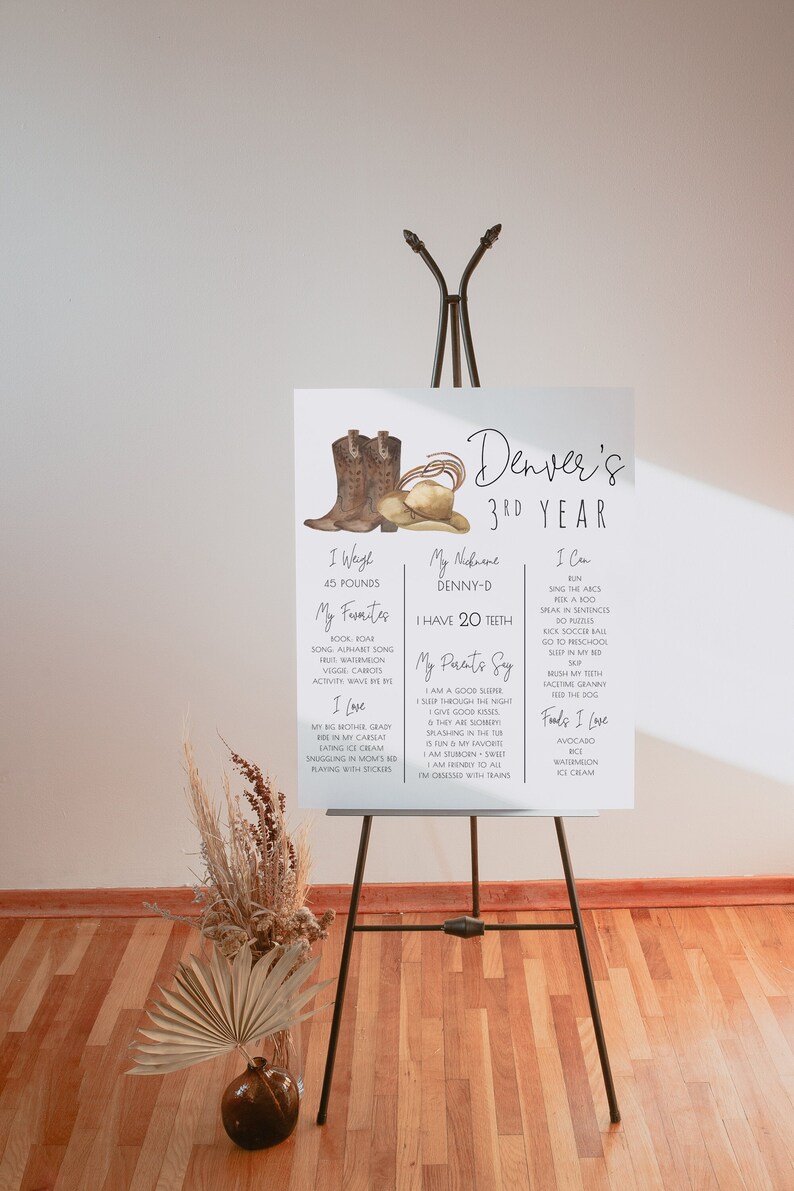 Denver's
3RD YEAR
I Weigh
45 POUNDS
My Favorites
BOOK: ROAR
SONG: ALPHABET SONG
FRUIT: WATERMELON
VEGGIE: CARROTS
ACTIVITY: WAVE BYE BYE
I Love
MY BIG BROTHER, GRADY
RIDE IN MY CARSEAT
EATING ICE CREAM
SNUGGLING IN MOM'S BED
PLAYING WITH STICKERS
My Nickname
DENNY-D
I HAVE 20 TEETH
My Parents Say
I AM A GOOD SLEEPER,
I SLEEP THROUGH THE NIGHT
I GIVE GOOD KISSES,
& THEY ARE SLOBBERY!
SPLASHING IN THE TUB
IS FUN & MY FAVORITE
I AM STUBBORN + SWEET
I AM FRIENDLY TO ALL
I'M OBSESSED WITH TRAINS
I Can
RUN
SING THE ABCS
PEEK A BOO
SPEAK IN SENTENCES
DO PUZZLES
KICK SOCCER BALL
GO TO PRESCHOOL
SLEEP IN MY BED
SKIP
BRUSH MY TEETH
FACETIME GRANNY
FEED THE DOG
Foods I Love
AVOCADO
RICE
WATERMELON
ICE CREAM